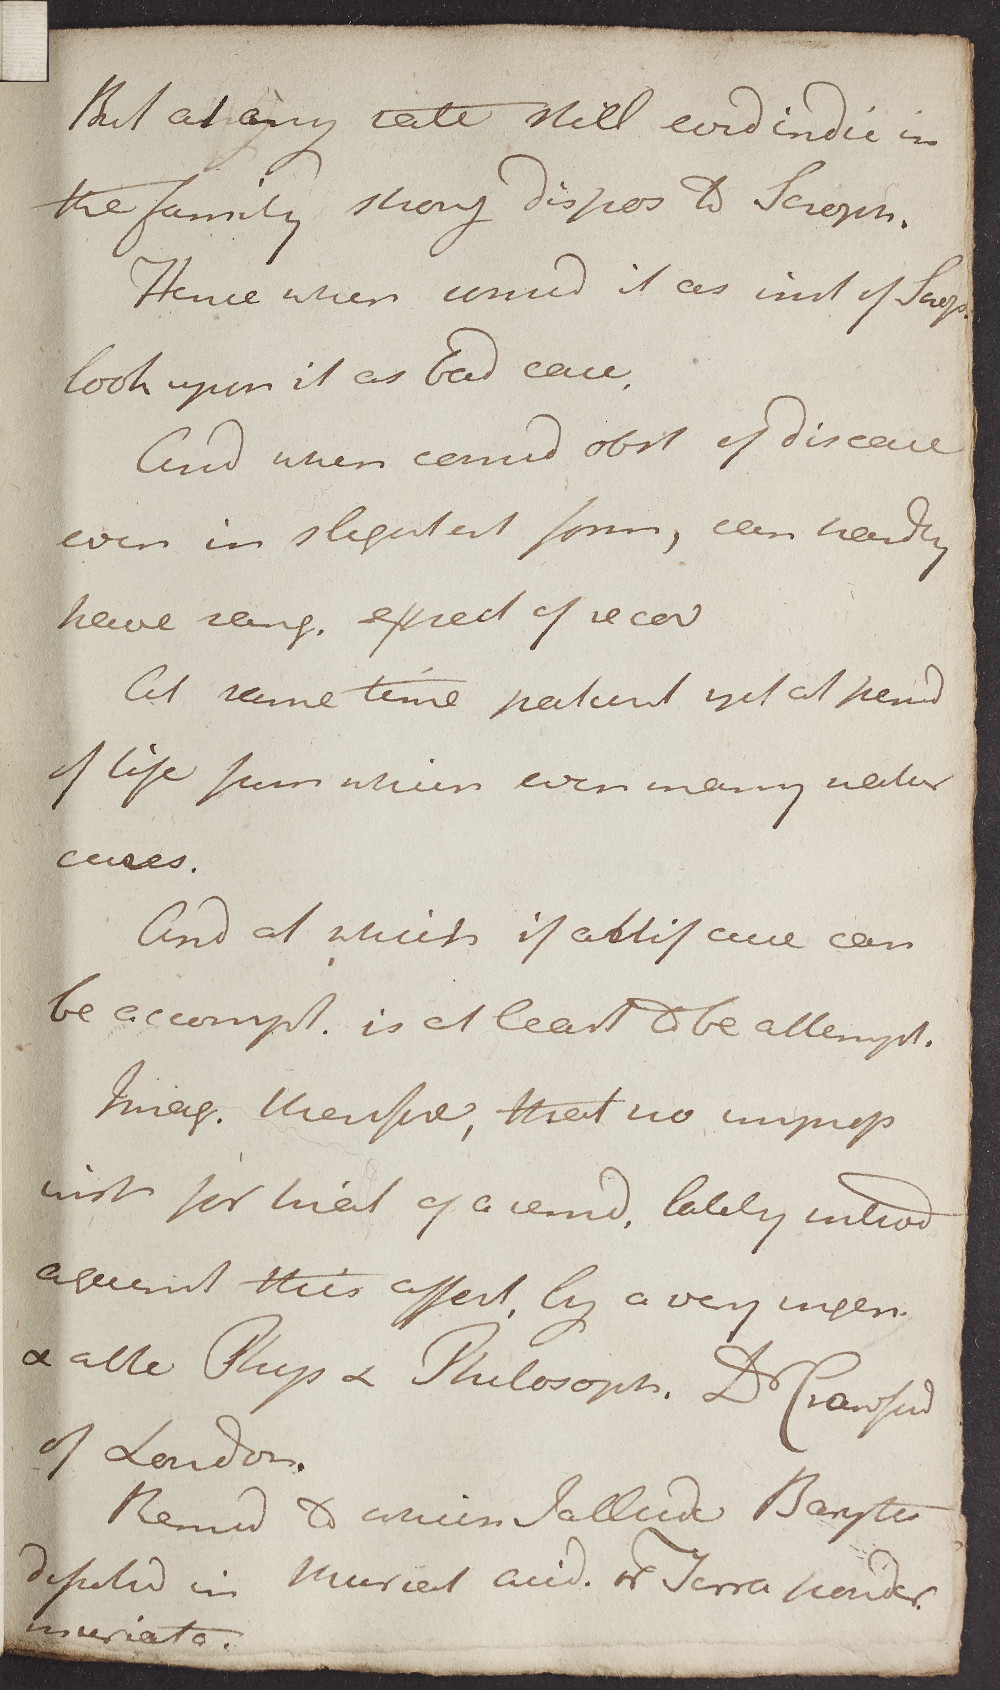 But at any rate still evid indic in
the family strong dispos to Scroph.
Hence when consid it as inst of Scrop.
look upon it as bad case.
And when consid obst of disease
even in slightest form, can hardly
have sang. expect of recov
At same time patient yet at period
of life from which even many natur
cures.
And at which if artif cure can
be accompt. is at least to be attempt.
Imag. therefore, that no improp
inst for trial of a remed. lately introd
against this affect. by a very ingen.
& able Phys & Philosoph. Dr Crawford
of London.
Remed to which I allude Barytes
dissolvd in muriat acid. or Terra ponder.
muriata.